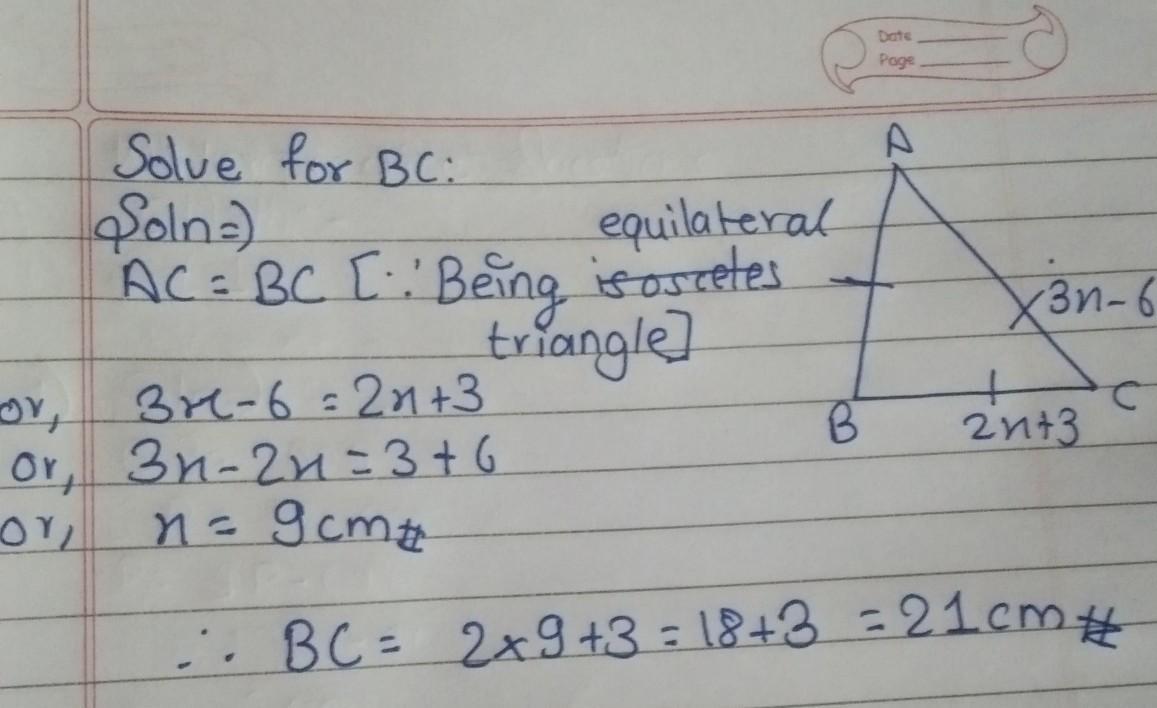 Date
Page
Solve for BC:
Soln⇒
equilateral
AC = BC [∵ Being isosceles
triangle]
or, 3x-6 = 2x+3
or, 3x-2x = 3+6
or, x = 9cm #
∴ BC = 2×9+3 = 18+3 = 21cm #
A
3x-6
B
C
2x+3